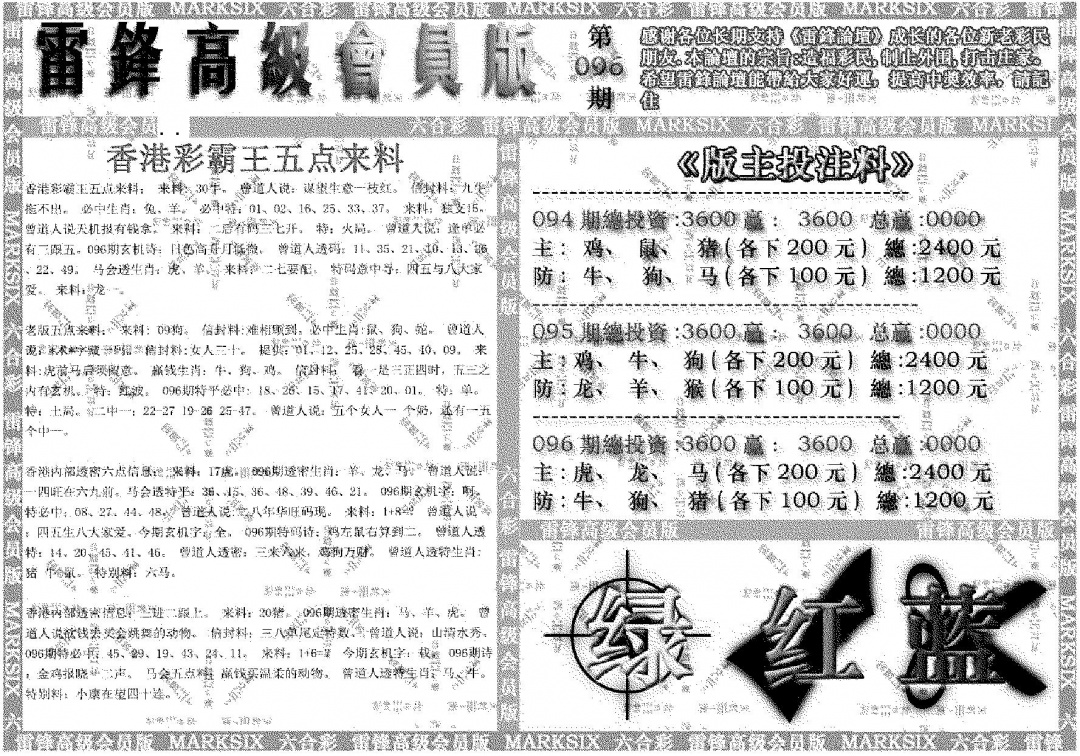 雷鋒高級會員版
第
096
期
感谢各位长期支持《雷鋒論壇》成长的各位新老彩民
朋友.本論壇的宗旨:造福彩民,制止外围,打击庄家.
希望雷鋒論壇能帶給大家好運，提高中獎效率，請記
住
六合彩 雷锋高级会员版 MARKSIX 六合彩 雷锋高级会员版 MARKSIX
香港彩霸王五点来料
香港彩霸王五点来料： 来料：30牛。 曾道人说：谋望生意一枝红。 信封料：九牛
拖不出。 必中生肖：兔、羊。 必中特：01、02、16、25、33、37。 来料：独支15。
曾道人说天机报有钱拿。 来料：二后有码三七开。 特：火局。 曾道人说：逢单必
有三跟五。096期玄机诗：日色高
曾道人透码：11、35、21、
、22、49。 马会透生肖：虎、羊。 来料：二七要配。 特码意中寻：四五与八大家
爱。 来料：龙一。
老版五点来料： 来料：09狗。 信封料:难相顾到。必中生肖:鼠、狗、蛇。 曾道人
信封料:女人三十。 提供：01、12、25、28、45、40、09。 来
料:虎前马后须留意。 赢钱生肖：牛、狗、鸡。 信封料： 看一是三正四时，五三之
内有玄机。 特：红波。 096期特平必中：18、26、15、17、41、20、01。 特：单。
特：土局。 二中一：22-27 19-26 25-47。 曾道人说：五个女人一个奶，还有一五
个中一。
香港内部透密六点信息： 来料：17虎。 096期透密生肖：羊、龙、马。 曾道人说：
一四旺在六九前。马会透特平：36、15、36、48、39、46、21。 096期玄机字：啊。
特必中：08、27、44、48。 曾道人说:二八年华旺码现。 来料：1+8=9 曾道人说
：四五生八大家爱。今期玄机字：全。 096期特码诗：鸡左鼠右算到二。 曾道人透
特：14、20、45、41、46。 曾道人透密：三来六来，鸡狗万财。 曾道人透特生肖：
猪 牛 鼠。 特别料：六马。
香港内部透密信息：三进二跟上。 来料：20猪。 096期透密生肖：马、羊、虎。 曾
道人说欲钱去买会跳舞的动物。 信封料：三八单尾定特数。 曾道人说：山清水秀。
096期特必中：45、29、19、43、24、11。 来料：1+6= 今期玄机字：载。 096期诗
：金鸡报晓一二声。 马会五点料：赢钱买温柔的动物。 曾道人透特生肖：马、牛。
特别料：小康在望四十连。
《版主投注料》
094 期總投资:3600 赢： 3600 总赢:0000
主：鸡、 鼠、 猪(各下 200 元) 總:2400 元
防：牛、 狗、 马(各下 100 元) 總:1200 元
095 期總投资:3600 赢： 3600 总赢:0000
主：鸡、 牛、 狗(各下 200 元) 總:2400 元
防：龙、 羊、 猴(各下 100 元) 總:1200 元
096 期總投资:3600 赢： 3600 总赢:0000
主：虎、 龙、 马(各下 200 元) 總:2400 元
防：牛、 狗、 猪(各下 100 元) 總:1200 元
雷锋高级会员版 雷锋高级会员版
绿 红 蓝
雷锋高级会员版 MARKSIX 六合彩 雷锋高级会员版 MARKSIX 六合彩 雷锋高级会员版 MARKSIX 六合彩